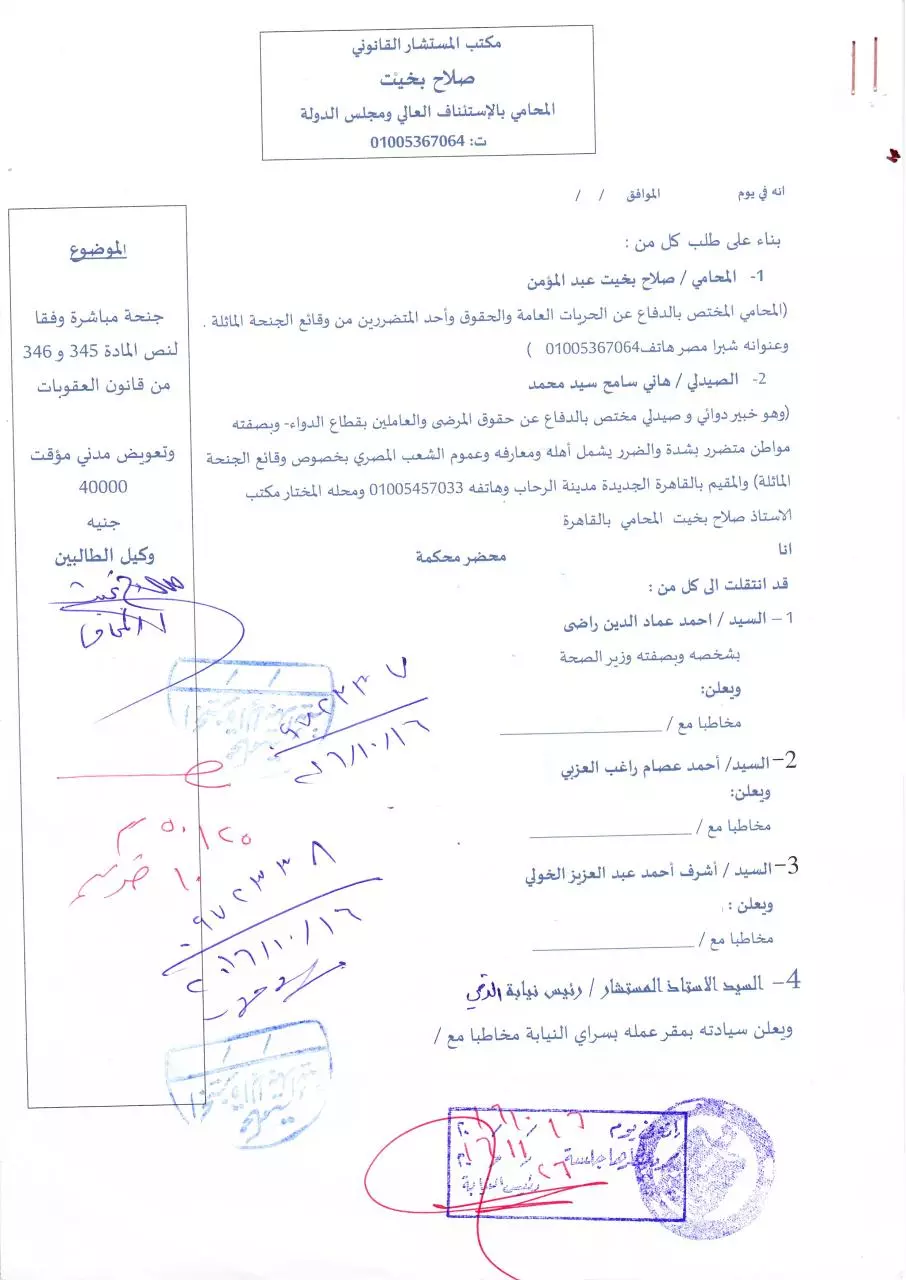 مكتب المستشار القانوني
صلاح بخيت
المحامي بالإستئناف العالي ومجلس الدولة
ت: 01005367064
انه في يوم الموافق / /
بناء على طلب كل من :
1- المحامي / صلاح بخيت عبد المؤمن
(المحامي المختص بالدفاع عن الحريات العامة والحقوق وأحد المتضررين من وقائع الجنحة الماثلة .
وعنوانه شبرا مصر هاتف01005367064 )
2- الصيدلي / هاني سامح سيد محمد
(وهو خبير دوائي و صيدلي مختص بالدفاع عن حقوق المرضى والعاملين بقطاع الدواء- وبصفته
مواطن متضرر بشدة والضرر يشمل أهله ومعارفه وعموم الشعب المصري بخصوص وقائع الجنحة
الماثلة) والمقيم بالقاهرة الجديدة مدينة الرحاب وهاتفه 01005457033 ومحله المختار مكتب
الاستاذ صلاح بخيت المحامي بالقاهرة
انا محضر محكمة
قد انتقلت الى كل من :
1– السيد / احمد عماد الدين راضى
بشخصه وبصفته وزير الصحة
ويعلن:
مخاطبا مع /
2– السيد/ أحمد عصام راغب العزبي
ويعلن:
مخاطبا مع /
3– السيد / أشرف أحمد عبد العزيز الخولي
ويعلن :
مخاطبا مع /
4– السيد الاستاذ المستشار / رئيس نيابة الدقي
ويعلن سيادته بمقر عمله بسراي النيابة مخاطبا مع /
الموضوع
جنحة مباشرة وفقا
لنص المادة 345 و 346
من قانون العقوبات
وتعويض مدني مؤقت
40000
جنيه
وكيل الطالبين
صلاح بخيت
المحامي
٩٧٢٣٣٧
٢٠١٦/١٠/١٦
٩٧٢٣٣٨
٢٠١٦/١٠/١٦
رئيس النيابة